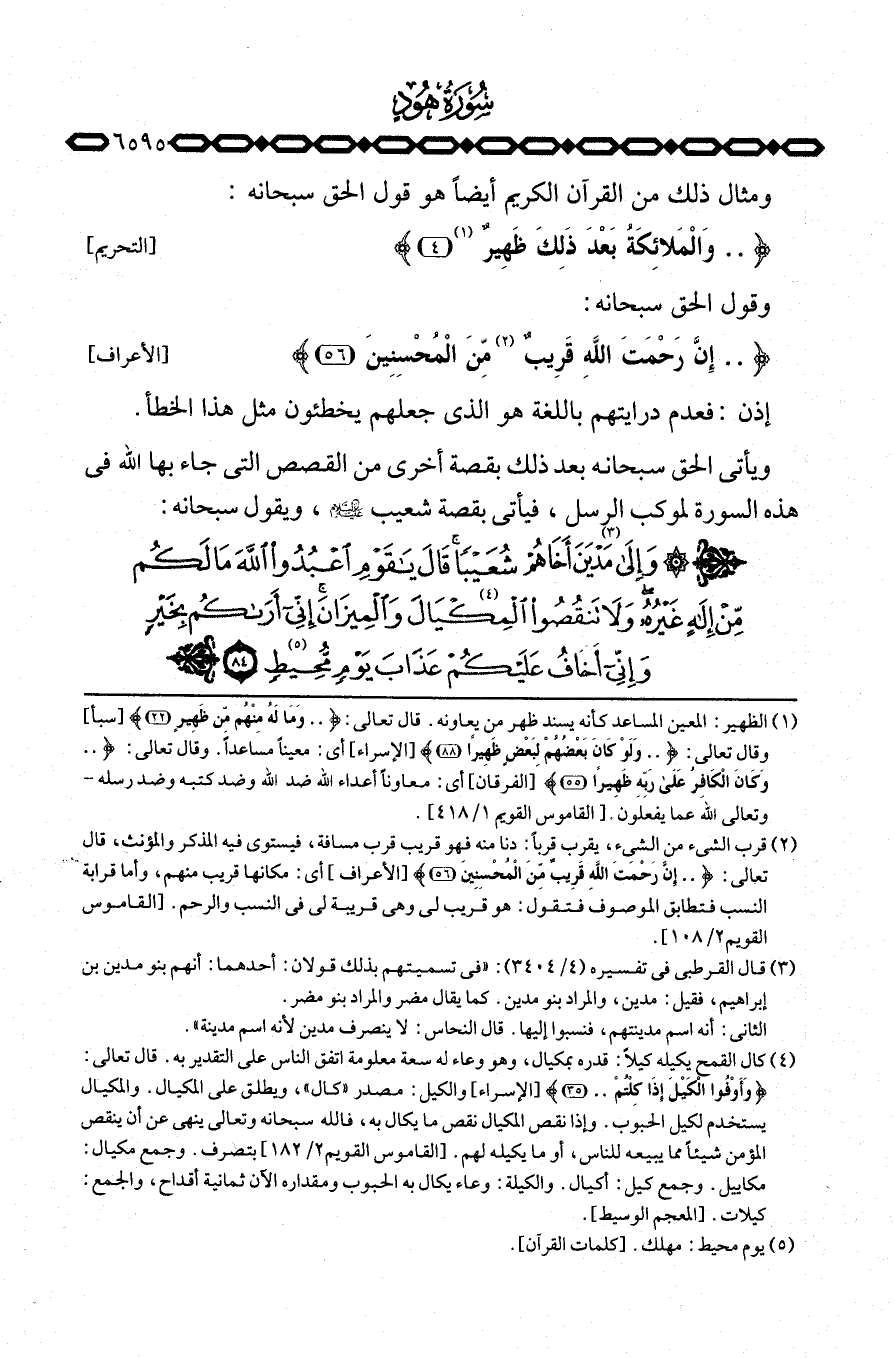 سُورَةُ هُودٍ
٦٥٩٥
ومثال ذلك من القرآن الكريم أيضاً هو قول الحق سبحانه :
﴿ .. وَالْمَلائِكَةُ بَعْدَ ذَلِكَ ظَهِيرٌ (١) (٤) ﴾ [التحريم]
وقول الحق سبحانه :
﴿ .. إِنَّ رَحْمَتَ اللَّهِ قَرِيبٌ (٢) مِّنَ الْمُحْسِنِينَ (٥٦) ﴾ [الأعراف]
إذن : فعدم درايتهم باللغة هو الذى جعلهم يخطئون مثل هذا الخطأ .
ويأتى الحق سبحانه بعد ذلك بقصة أخرى من القصص التى جاء بها الله فى
هذه السورة لموكب الرسل ، فيأتى بقصة شعيب عليه السلام ، ويقول سبحانه :
۞ وَإِلَىٰ مَدْيَنَ (٣) أَخَاهُمْ شُعَيْبًا ۚ قَالَ يَـٰقَوْمِ ٱعْبُدُوا۟ ٱللَّهَ مَا لَكُم
مِّنْ إِلَـٰهٍ غَيْرُهُۥ ۖ وَلَا تَنقُصُوا۟ ٱلْمِكْيَالَ (٤) وَٱلْمِيزَانَ ۚ إِنِّىٓ أَرَىٰكُم بِخَيْرٍ
وَإِنِّىٓ أَخَافُ عَلَيْكُمْ عَذَابَ يَوْمٍ (٥) مُّحِيطٍ ٨٤
(١) الظهير : المعين المساعد كأنه يسند ظهر من يعاونه . قال تعالى : ﴿ .. وَمَا لَهُ مِنْهُم مِّن ظَهِيرٍ (٢٢) ﴾ [سبأ]
وقال تعالى : ﴿ .. وَلَوْ كَانَ بَعْضُهُمْ لِبَعْضٍ ظَهِيرًا (٨٨) ﴾ [الإسراء] أى : معيناً مساعداً . وقال تعالى : ﴿ ..
وَكَانَ الْكَافِرُ عَلَىٰ رَبِّهِ ظَهِيرًا (٥٥) ﴾ [الفرقان] أى : معاوناً أعداء الله ضد الله وضد كتبه وضد رسله –
وتعالى الله عما يفعلون . [ القاموس القويم ١/ ٤١٨] .
(٢) قرب الشىء من الشىء، يقرب قرباً : دنا منه فهو قريب قرب مسافة، فيستوى فيه المذكر والمؤنث، قال
تعالى : ﴿ .. إِنَّ رَحْمَتَ اللَّهِ قَرِيبٌ مِّنَ الْمُحْسِنِينَ (٥٦) ﴾ [الأعراف ] أى : مكانها قريب منهم، وأما قرابة
النسب فتطابق الموصوف فتقول : هو قريب لى وهى قريبة لى فى النسب والرحم . [القاموس
القويم ٢/ ١٠٨].
(٣) قال القرطبى فى تفسيره (٤/ ٣٤٠٤) : «فى تسميتهم بذلك قولان : أحدهما : أنهم بنو مدين بن
إبراهيم، فقيل : مدين، والمراد بنو مدين . كما يقال مضر والمراد بنو مضر .
الثانى : أنه اسم مدينتهم، فنسبوا إليها . قال النحاس : لا ينصرف مدين لأنه اسم مدينة» .
(٤) كال القمح يكيله كيلاً : قدره بمكيال، وهو وعاء له سعة معلومة اتفق الناس على التقدير به . قال تعالى :
﴿ وَأَوْفُوا الْكَيْلَ إِذَا كِلْتُمْ .. (٣٥) ﴾ [الإسراء] والكيل : مصدر «كال»، ويطلق على المكيال . والمكيال
يستخدم لكيل الحبوب . وإذا نقص المكيال نقص ما يكال به، فالله سبحانه وتعالى ينهى عن أن ينقص
المؤمن شيئاً مما يبيعه للناس، أو ما يكيله لهم . [القاموس القويم ٢/ ١٨٢] بتصرف . وجمع مكيال :
مكاييل . وجمع كيل : أكيال . والكيلة : وعاء يكال به الحبوب ومقداره الآن ثمانية أقداح، والجمع :
كيلات . [المعجم الوسيط] .
(٥) يوم محيط : مهلك . [كلمات القرآن] .